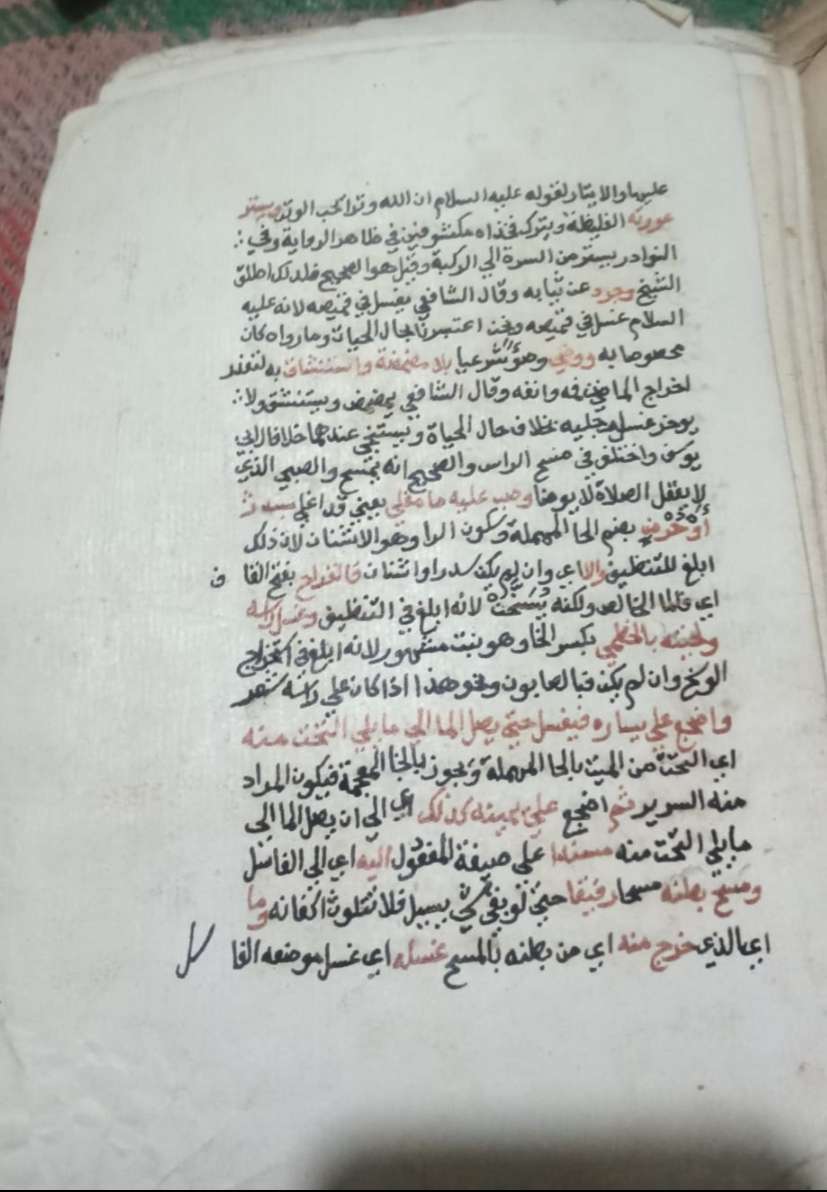 عليها والايتار لقوله عليه السلام ان الله وتر يحب الوتر ويستر
عورته الغليظة ويترك فخذاه مكشوفتين في ظاهر الرواية وفي
النوادر يستر من السرة الي الركبة وقيل هو الصحيح فلذلك اطلق
الشيخ وجرد عن ثيابه وقال الشافعي يغسل في قميصه لانه عليه
السلام غسل في قميصه ونحن اعتبرنا بحال الحيات وما رواه كان
مخصوصا به ووضي وضؤا شرعيا بلا مضمضة واستنشاق به لتعذر
اخراج الما من فمه وانفه وقال الشافعي يمضمض ويستنشق ولا
يوخر غسل رجليه بخلاف حال الحياة ويستنجي عندهما خلافا لابي
يوسف واختلف في مسح الراس والصحيح انه يمسح والصبي الذي
لا يعقل الصلاة لا يوضا وصب عليه ما مغلي يعني قد اغلي بسدر
أو حُرض بضم الحا المهملة وسكون الرا وهو الاشنان لان ذلك
ابلغ للتنظيف والا اي وان لم يكن سدر او اشنان فالقراح بفتح القاف
اي فالما الخالص ولكنه يُسَخَّن لانه ابلغ في التنظيف وغسل راسه
ولحيته بالخطمي بكسر الخا وهو نبت مشهور لانه ابلغ في استخراج
الوسخ وان لم يكن فبالصابون ونحو هذا اذا كان علي راسه شعر
واضجع علي يساره فيغسل حتي يصل الما الي ما يلي التخت منه
اي التحت من الميت بالحا المهملة ويجوز بالخا المعجمة فيكون المراد
منه السرير ثم اضجع علي يمينه كذلك اي الي ان يصل الما الي
ما يلي التحت منه مسندا علي صيغة المفعول اليه اي الي الغاسل
ومسح بطنه مسحا رفيقا حتي لو بقي شي يسيل فلا تتلوث اكفانه وما
اي الذي خرج منه اي من بطنه بالمسح غسله اي غسل موضعه الغا
سل